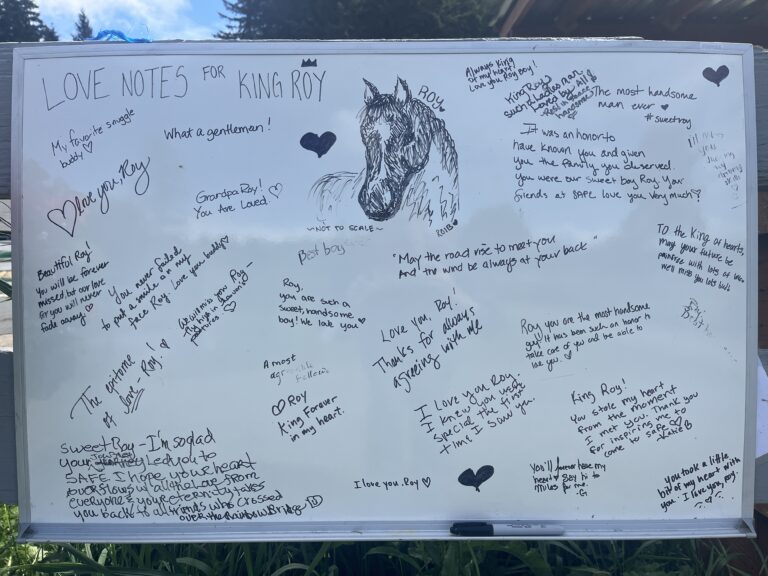 LOVE NOTES FOR KING ROY
My favorite snuggle
buddy
What a gentleman!
ROY
Always King
of my heart!
Love you Roy Boy!
King Roy
Loved by All
The most handsome
man ever
#sweetroy
I love you, Roy
Grandpa Roy!
You Are Loved
~NOT TO SCALE~
2018
It was an honor to
have known you and given
you the family you deserved.
You were our sweet boy Roy. Your
friends at SAFE love you very much!
Best boy
Beautiful Roy!
You will be forever
missed but our love
for you will never
fade away
You never failed
to put a smile on my
face Roy. Love you buddy
Roy,
you are such a
sweet, handsome
boy! We love you
"May the road rise to meet you
And the wind be always at your back"
To the King of hearts,
may your future be
painfree with lots of love
we'll miss you lots
Love you, Roy!
Thanks for always
agreeing with me
Roy you are the most handsome
guy! It has been such an honor to
take care of you and be able to
love you.
The epitome
of love - Roy!
A most
Roy
King Forever
in my heart.
I love you Roy.
I knew you were
special the first
time I saw you.
King Roy!
You stole my heart
from the moment
I met you. Thank you
for inspiring me to
come be SAFE
Katie B
Sweet Boy - I'm so glad
your journey led you to
SAFE. I hope your heart
overflows w/ all the love from
everyone & your eternity takes
you back to all friends who crossed
over the Rainbow Bridge
I love you, Roy
You'll forever have my
heart Say hi to
Miles for me.
You took a little
bit of my heart with
you. I love you, Roy.